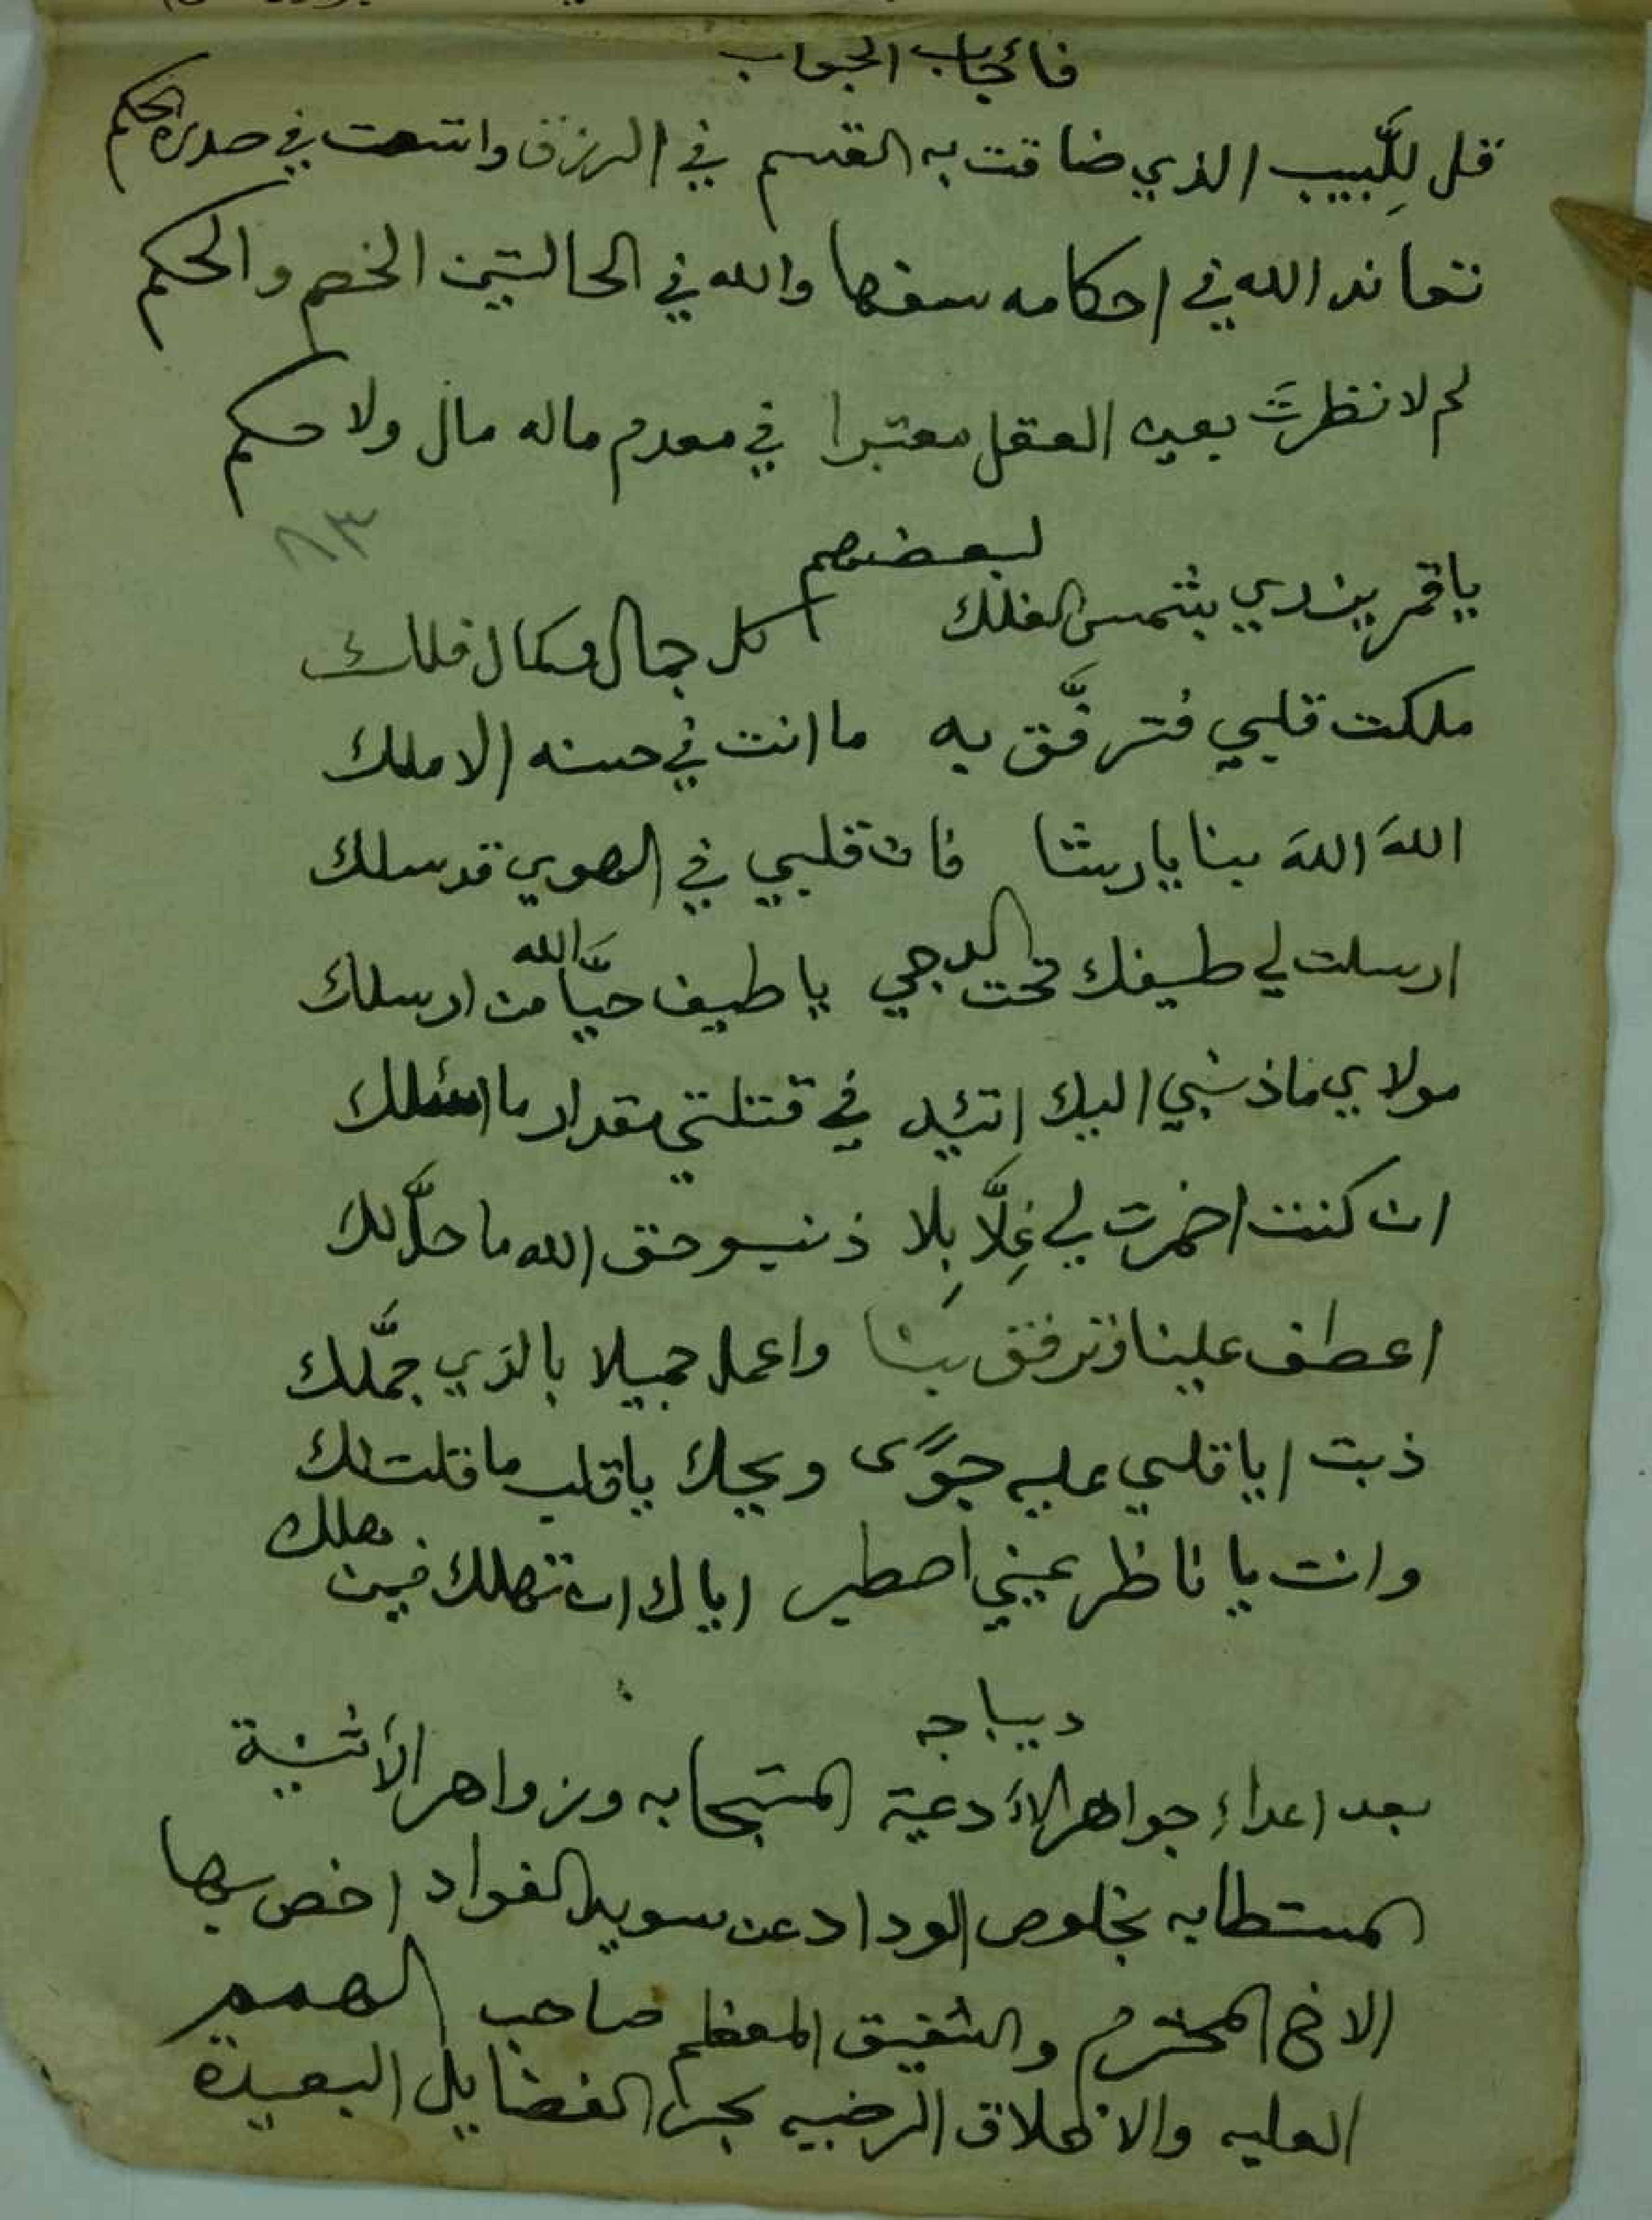 فأجاب الجواب
قل لِلَّبيب الذي ضاقت به القسم في الرزق واتسعت في صدره الحكم
تعاند الله في احكامه سفها والله في الحالتين الخصم والحكم
لم لا نظرتَ بعين العقل معتبرا في معدم ماله مال ولا حكم
٨٣
لبعضهم
ياقمر يزدري بشمس الفلك كل جمال وكمال فلك
ملكت قلبي فترفَّق به ما انت في حسنه الا ملك
اللهَ اللهَ بنا يا رشا فان قلبي في الهوي قد سلك
ارسلت لي طيفك تحت الدجي يا طيف حيَّا الله من ارسلك
مولاي ماذنبي اليك اتئد في قتلتي مقدار ما اسئلك
ان كنت اضمرت لي غِلَّا بِلا ذنب وحق الله ما حلَّ لك
اعطف علينا وترفق بنا واعمل جميلا بالذي جمَّلك
ذبت ايا قلبي عليه جوًى ويحك ياقلب ما قلت لك
وانت يا ناظر عيني اصطبر اياك ان تهلك فيمن هلك
ديباجه
بعد اهداء جواهر الأدعية المستجابه وزواهر الأثنية
المستطابه بخلوص الوداد عن سويد الفواد اخص بها
الاخ المحترم والشفيق المعظم صاحب الهمم
العليه والاخلاق الرضيه بحر الفضايل البعيدة